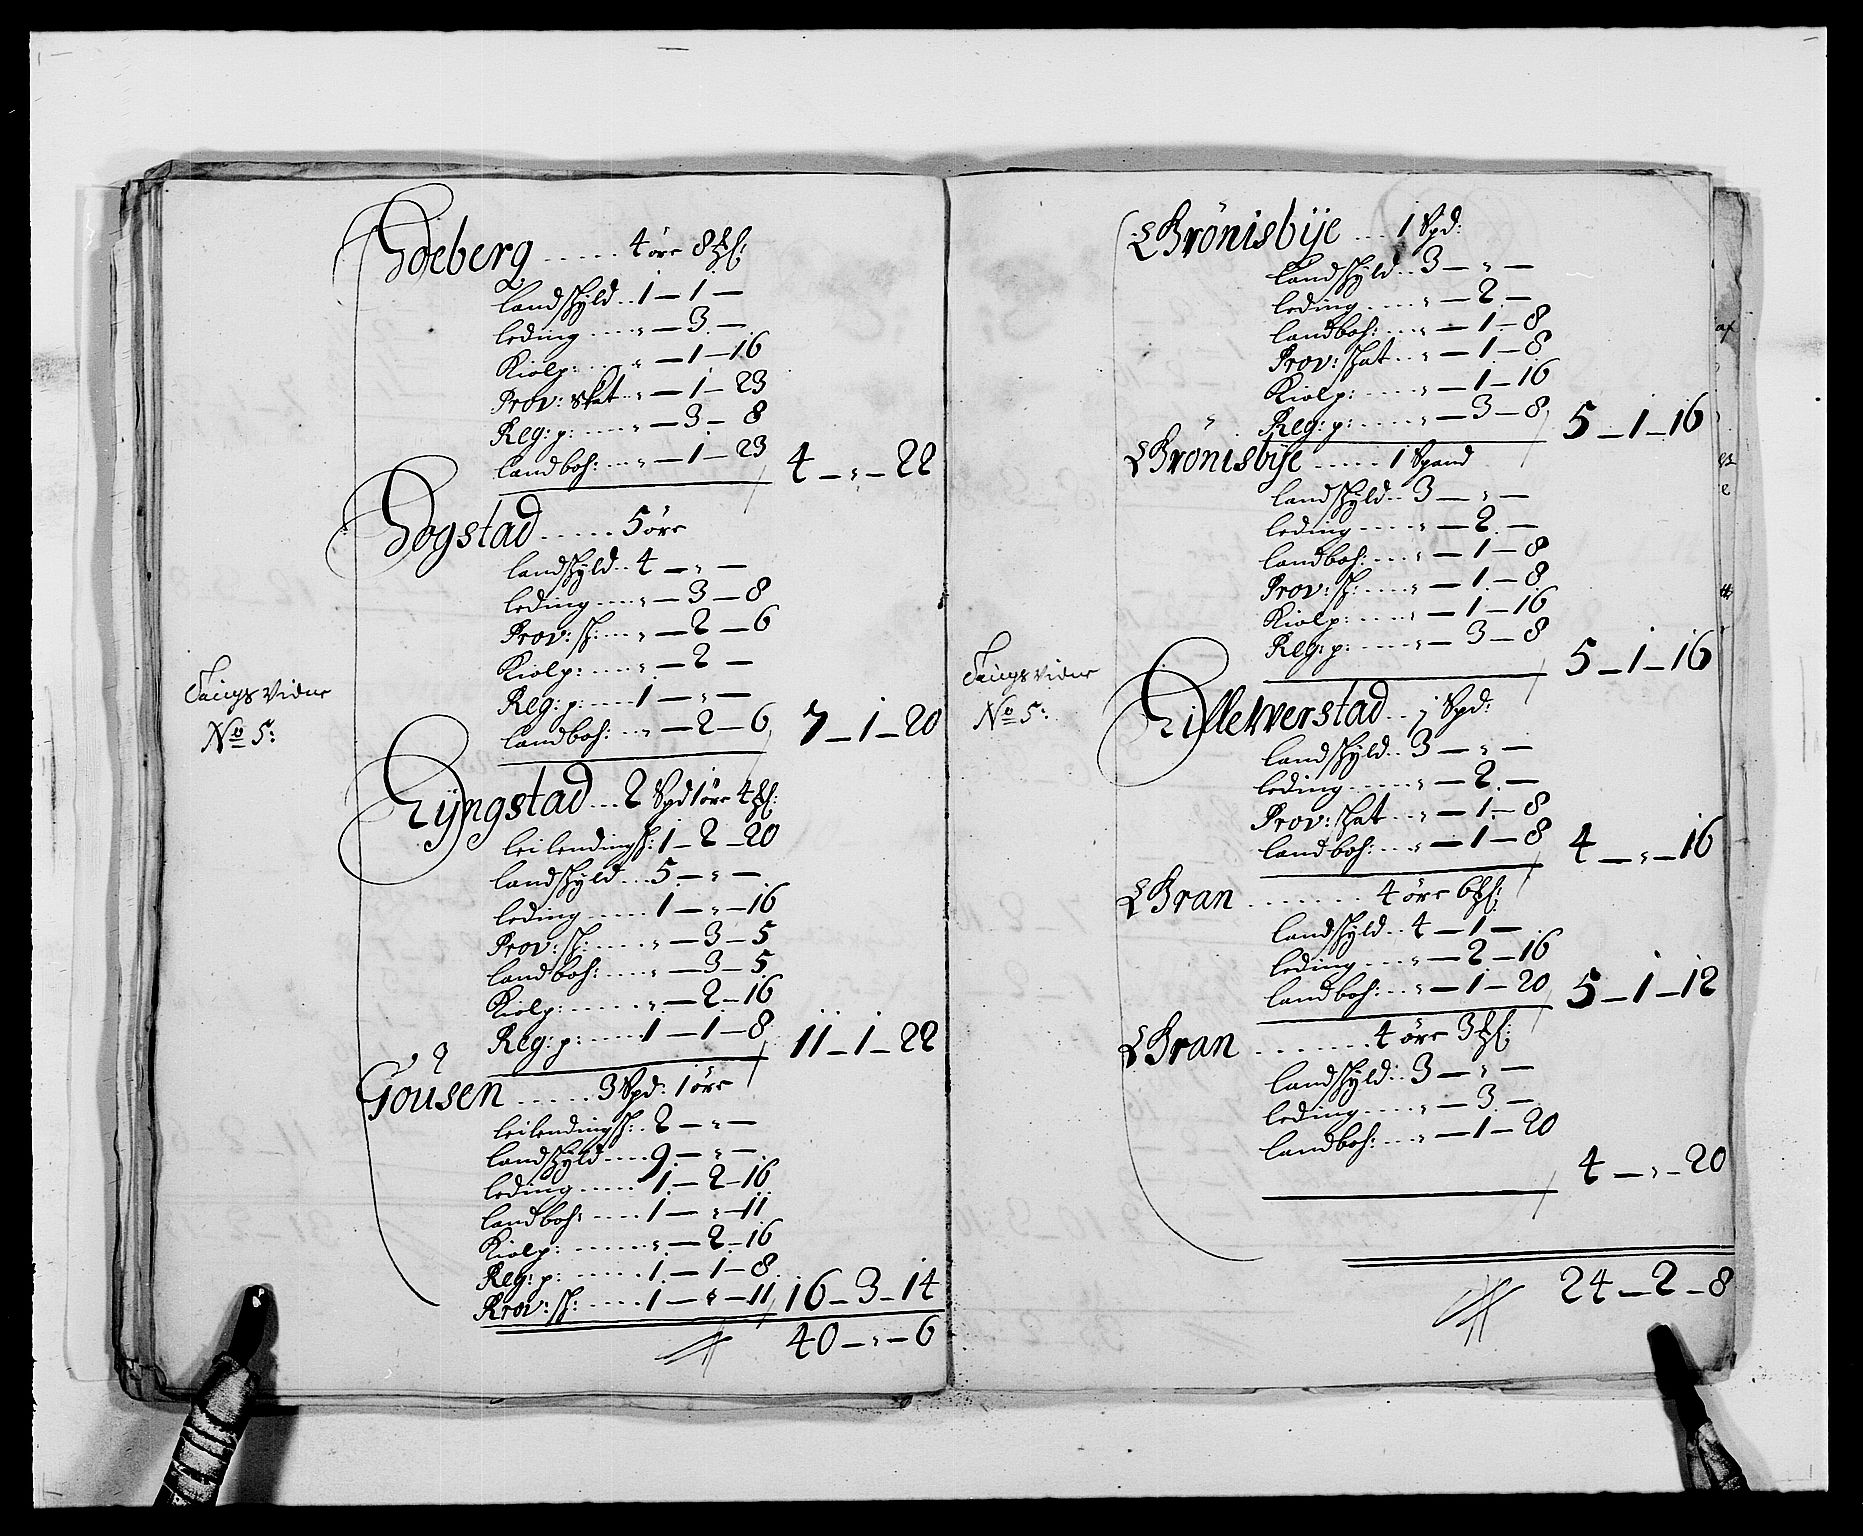 Tings Vidne
No 5:
Hoeberg ..... 4 öre 8 
Landskyld .. 1 — 1 —
Leding ..... „ — 3 —
Kiolp: ..... „ — 1 — 16
Prov: skat .. „ — 1 — 23
Reg: p: ..... „ — 3 — 8
Landboh: ... „ — 1 — 23 / 4 — „ — 22
Hogstad ..... 5 öre
Landskyld .. 4 — „ —
Leding ..... „ — 3 — 8
Prov: sk: ... „ — 2 — 6
Kiolp: ..... „ — 2 —
Reg: p: ..... 1 — „ —
Landboh: .. „ — 2 — 6 / 7 — 1 — 20
Ryngstad ... 2 Spd 1 öre 4 
Leilending sk: 1 — 2 — 20
Landskyld ... 5 — „ —
Leding ...... 1 — „ — 16
Prov: sk: ..... „ — 3 — 5
Landboh: .... „ — 3 — 5
Kiolp: ....... „ — 2 — 16
Reg: p: ...... 1 — 1 — 8 / 11 — 1 — 22
Gousen ..... 3 Spd: 1 öre
Leilending sk: .. 2 — „ —
Landskyld .... 9 — „ —
Leding ...... 1 — 2 — 16
Landboh: ..... 1 — „ — 11
Kiolp: ....... „ — 2 — 16
Reg: p: ...... 1 — 1 — 8
Prov: sk: ..... 1 — „ — 11 / 16 — 3 — 14
40 — „ — 6
Tings Vidne
No 5:
Brönisbÿe ... 1 Spd:
Landskyld .. 3 — „ —
Leding ..... „ — 2 —
Landboh: ... „ — 1 — 8
Prov: skat .. „ — 1 — 8
Kiolp: ..... „ — 1 — 16
Reg: p: ..... „ — 3 — 8 / 5 — 1 — 16
Brönisbÿe ..... 1 Spand
Landskyld .. 3 — „ —
Leding ..... „ — 2 —
Landboh: ... „ — 1 — 8
Prov: sk: .... „ — 1 — 8
Kiolp: ..... „ — 1 — 16
Reg: p: ..... „ — 3 — 8 / 5 — 1 — 16
Rilletverstad .. 1 Spd:
Landskyld .. 3 — „ —
Leding ..... „ — 2 —
Prov: skat .. „ — 1 — 8
Landboh: ... „ — 1 — 8 / 4 — „ — 16
Bran ....... 4 öre 6 
Landskyld .. 4 — 1 —
Leding .... „ — 2 — 16
Landboh: .. „ — 1 — 20 / 5 — 1 — 12
Bran ....... 4 öre 3 
Landskyld .. 3 — „ —
Leding ..... „ — 3 —
Landboh: ... „ — 1 — 20
4 — „ — 20
24 — 2 — 8